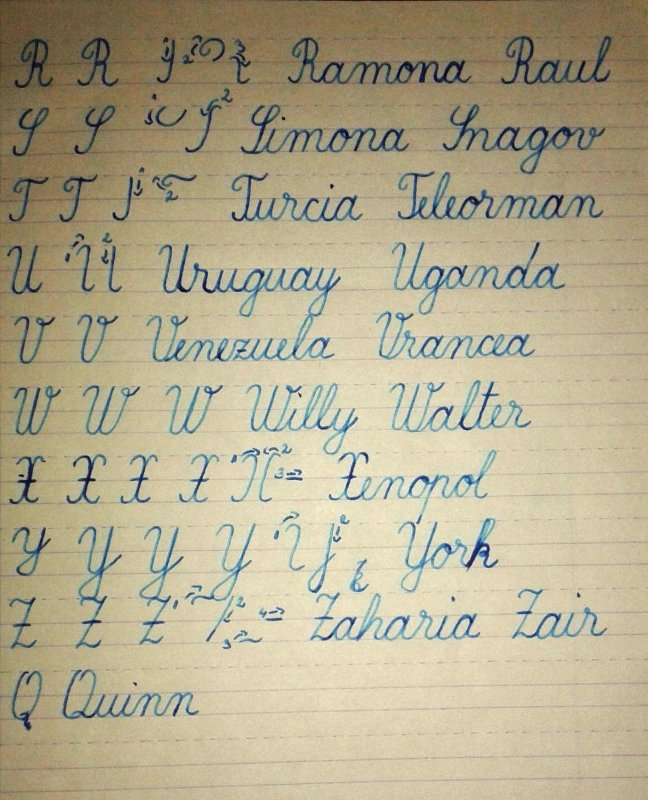 R R Ramona Raul
S S Simona Snagov
T T Turcia Teleorman
U U Uruguay Uganda
V V Venezuela Vrancea
W W W Willy Walter
X X X X X Xenopol
Y Y Y Y Y York
Z Z Z Zaharia Zair
Q Quinn